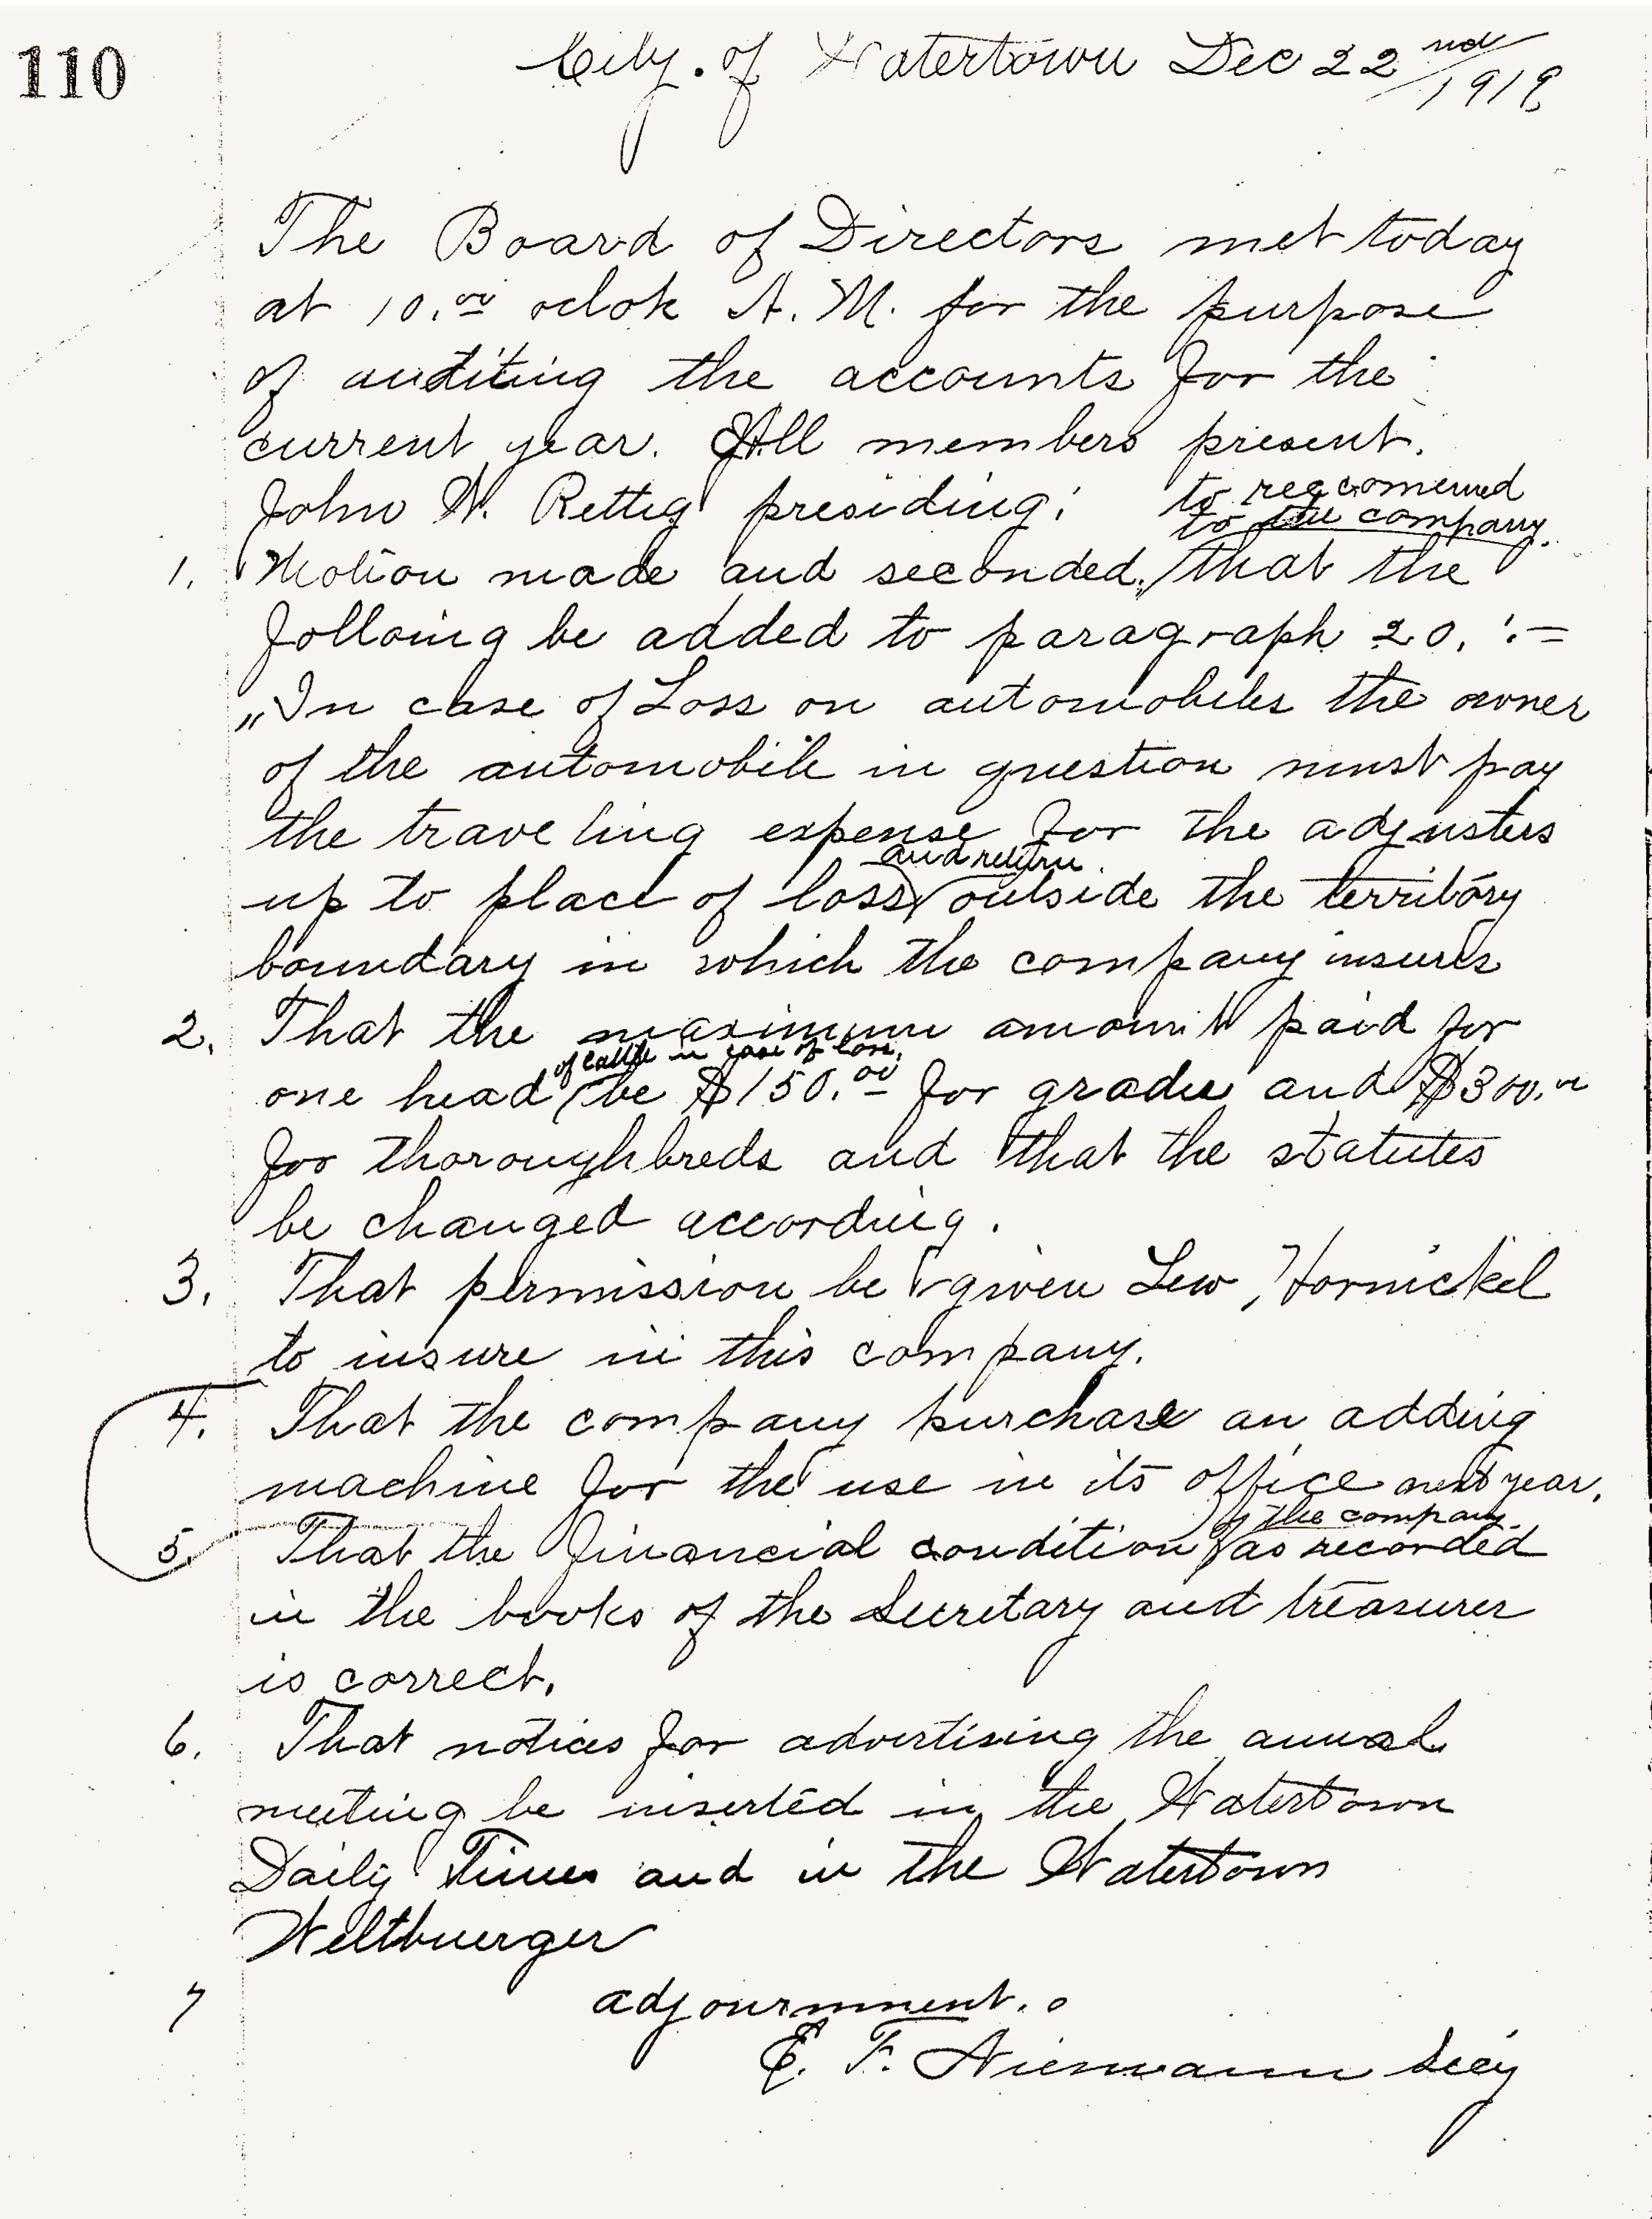 110
City. of Watertown Dec 22nd 1919
The Board of Directors met today
at 10.00 oclok A. M. for the purpose
of auditing the accounts for the
current year. All members present.
John W. Rettig presiding:
to reccomend
to the company.
1. Motion made and seconded, that the
folloing be added to paragraph 20. :=
„In case of Loss on automobiles the owner
of the automobile in question must pay
the traveling expense for the adjusters
and return
up to place of loss outside the territory
boundary in which the company insures
2. That the maximum amount paid for
of cattle in case of loss,
one head be $150.00 for grades and $300.00
for thoroughbreds and that the statutes
be changed according.
3. That permission be given Lew, Hornickel
to insure in this company.
4. That the company purchase an adding
machine for the use in its office next year.
of the company
5. That the financial condition as recorded
in the books of the Secretary and treasurer
is correct.
6. That notices for advertising the anual
meeting be inserted in the Watertown
Daily Times and in the Watertown
Weltbuerger
7 adjournment.
E. F. Niemann Secy